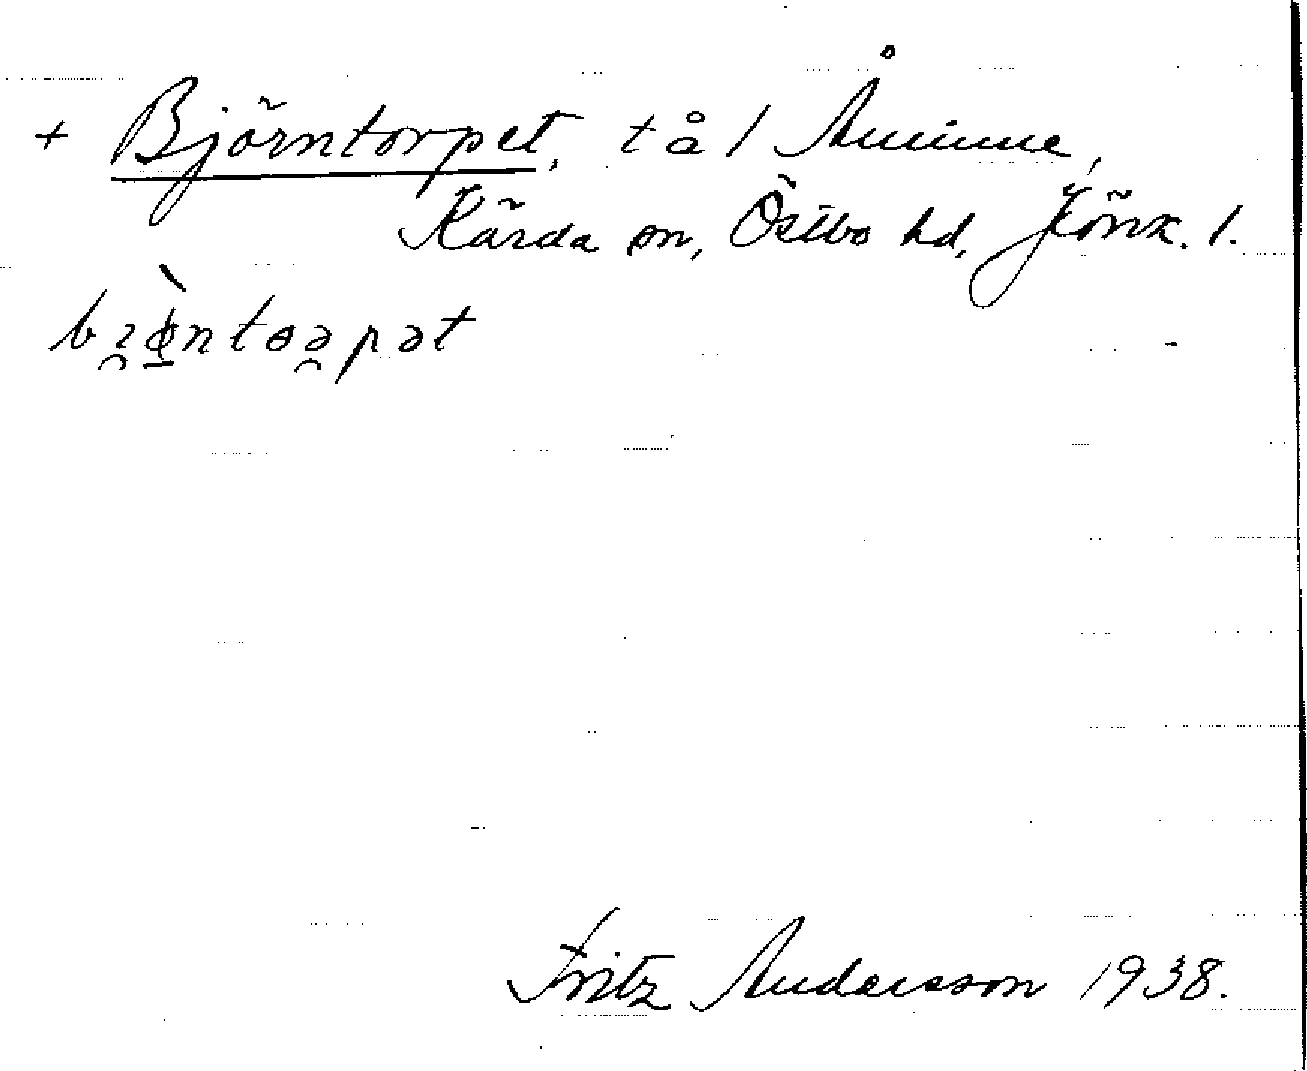 + Björntorpet, t å 1 Åminne,
Kärda sn, Östbo hd, Jönk. l.
bi̯ø̀ntoə̯pət
Fritz Andersson 1938.